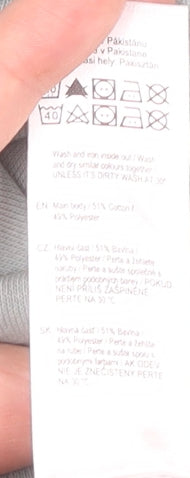 Pákistánu
v Pakistane
hely: Pakisztán
40
40
Wash and iron inside out / Wash
and dry similar colours together
UNLESS IT'S DIRTY WASH AT 30°
EN: Main body / 51% Cotton /
49% Polyester
CZ: Hlavní část / 51% Bavlna /
49% Polyester / Perte a žehlete
naruby / Perte a sušte společně s
prádlem podobných barev / POKUD
NENÍ PŘÍLIŠ ZAŠPINĚNÉ
PERTE NA 30 °C
SK: Hlavná časť / 51% Bavlna /
49% Polyester / Perte a žehlite
na rube / Perte a sušte spolu s
podobnými farbami / AK ODEV
NIE JE ZNEČISTENÝ PERTE
NA 30 °C